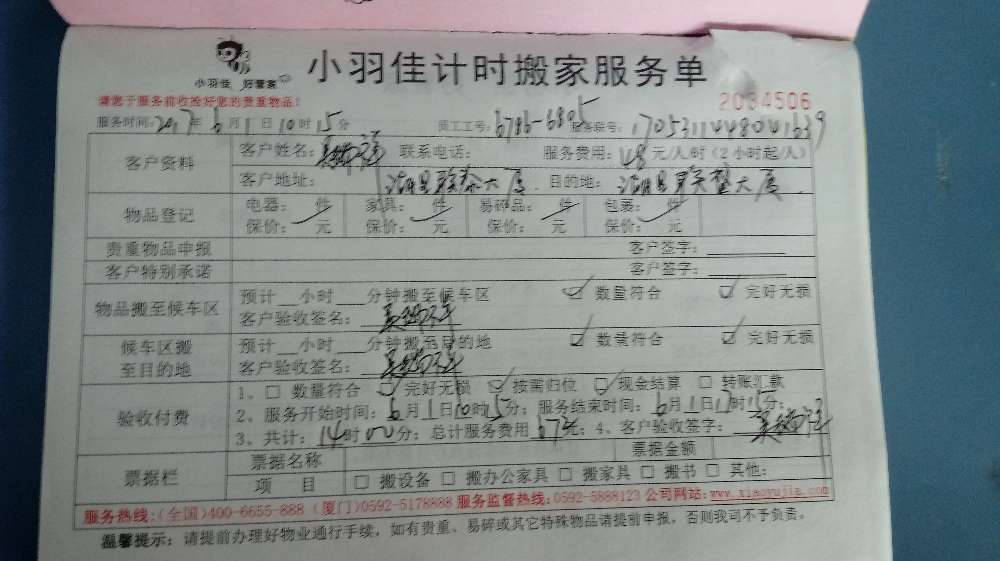 小羽佳 好管家
小羽佳计时搬家服务单
请您于服务前收捡好您的贵重物品!
2034506
服务时间:2017年6月1日10时15分 员工工号:6786-6805 服务联号:1705311448041639
客户资料
客户姓名: 联系电话: 服务费用:48元/人/时(2小时起/人)
客户地址: 大厦 目的地: 大厦
物品登记
电器: 件 家具: 件 易碎品: 件 包裹: 件
保价: 元 保价: 元 保价: 元 保价: 元
贵重物品申报 客户签字:
客户特别承诺 客户签字:
物品搬至候车区
预计__小时___分钟搬至候车区 数量符合 完好无损
客户验收签名:
候车区搬至目的地
预计__小时___分钟搬至目的地 数量符合 完好无损
客户验收签名:
验收付费
1、□ 数量符合 完好无损 按需归位 现金结算 □ 转账汇款
2、服务开始时间:6月1日10时15分;服务结束时间:6月1日17时15分;
3、共计:14时00分;总计服务费用672元;4、客户验收签字:
票据栏
票据名称 票据金额
项 目 □ 搬设备 □ 搬办公家具 □ 搬家具 □ 搬书 □ 其他:
服务热线:(全国)400-6655-888 (厦门)0592-5178888 服务监督热线:0592-5888123 公司网站:www.xiaoyujia.com
温馨提示:请提前办理好物业通行手续,如有贵重、易碎或其它特殊物品请提前申报,否则我司不予负责。